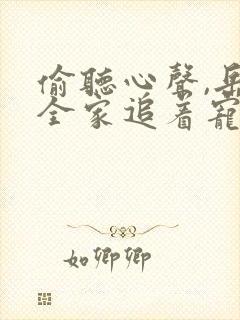 偷聽心聲,岳
全家追著寵
如卿卿